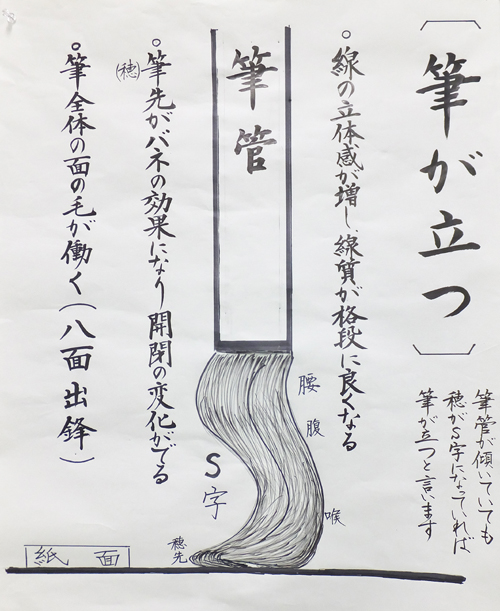 〔筆が立つ〕
筆管が傾いていても
穂がS字になっていれば
筆が立つと言います
○線の立体感が増し、線質が格段に良くなる
筆管
腰
腹
喉
S字
穂先
○筆先がバネの効果になり開閉の変化がでる
(穂)
○筆全体の面の毛が働く(八面出鋒)
紙面